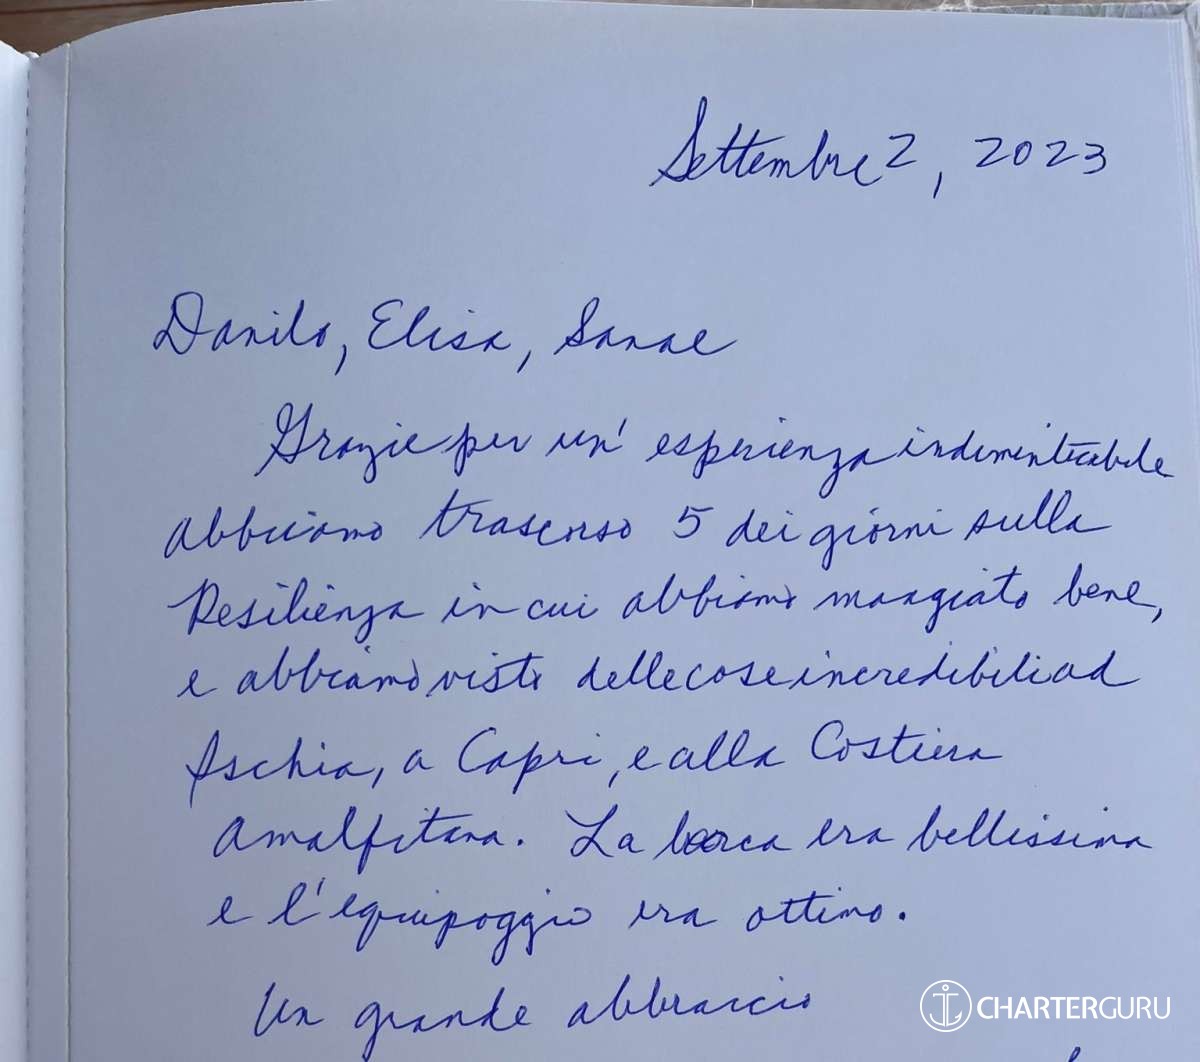 Settembre 2, 2023
Danilo, Elisa, Sanae
Grazie per un' esperienza indimenticabile
abbiamo trascorso 5 dei giorni sulla
Resilienza in cui abbiamo mangiato bene,
e abbiamo visto delle cose incredibili ad
Ischia, a Capri, e alla Costiera
Amalfitana. La barca era bellissima
e l'equipaggio era ottimo.
Un grande abbraccio
CHARTERGURU